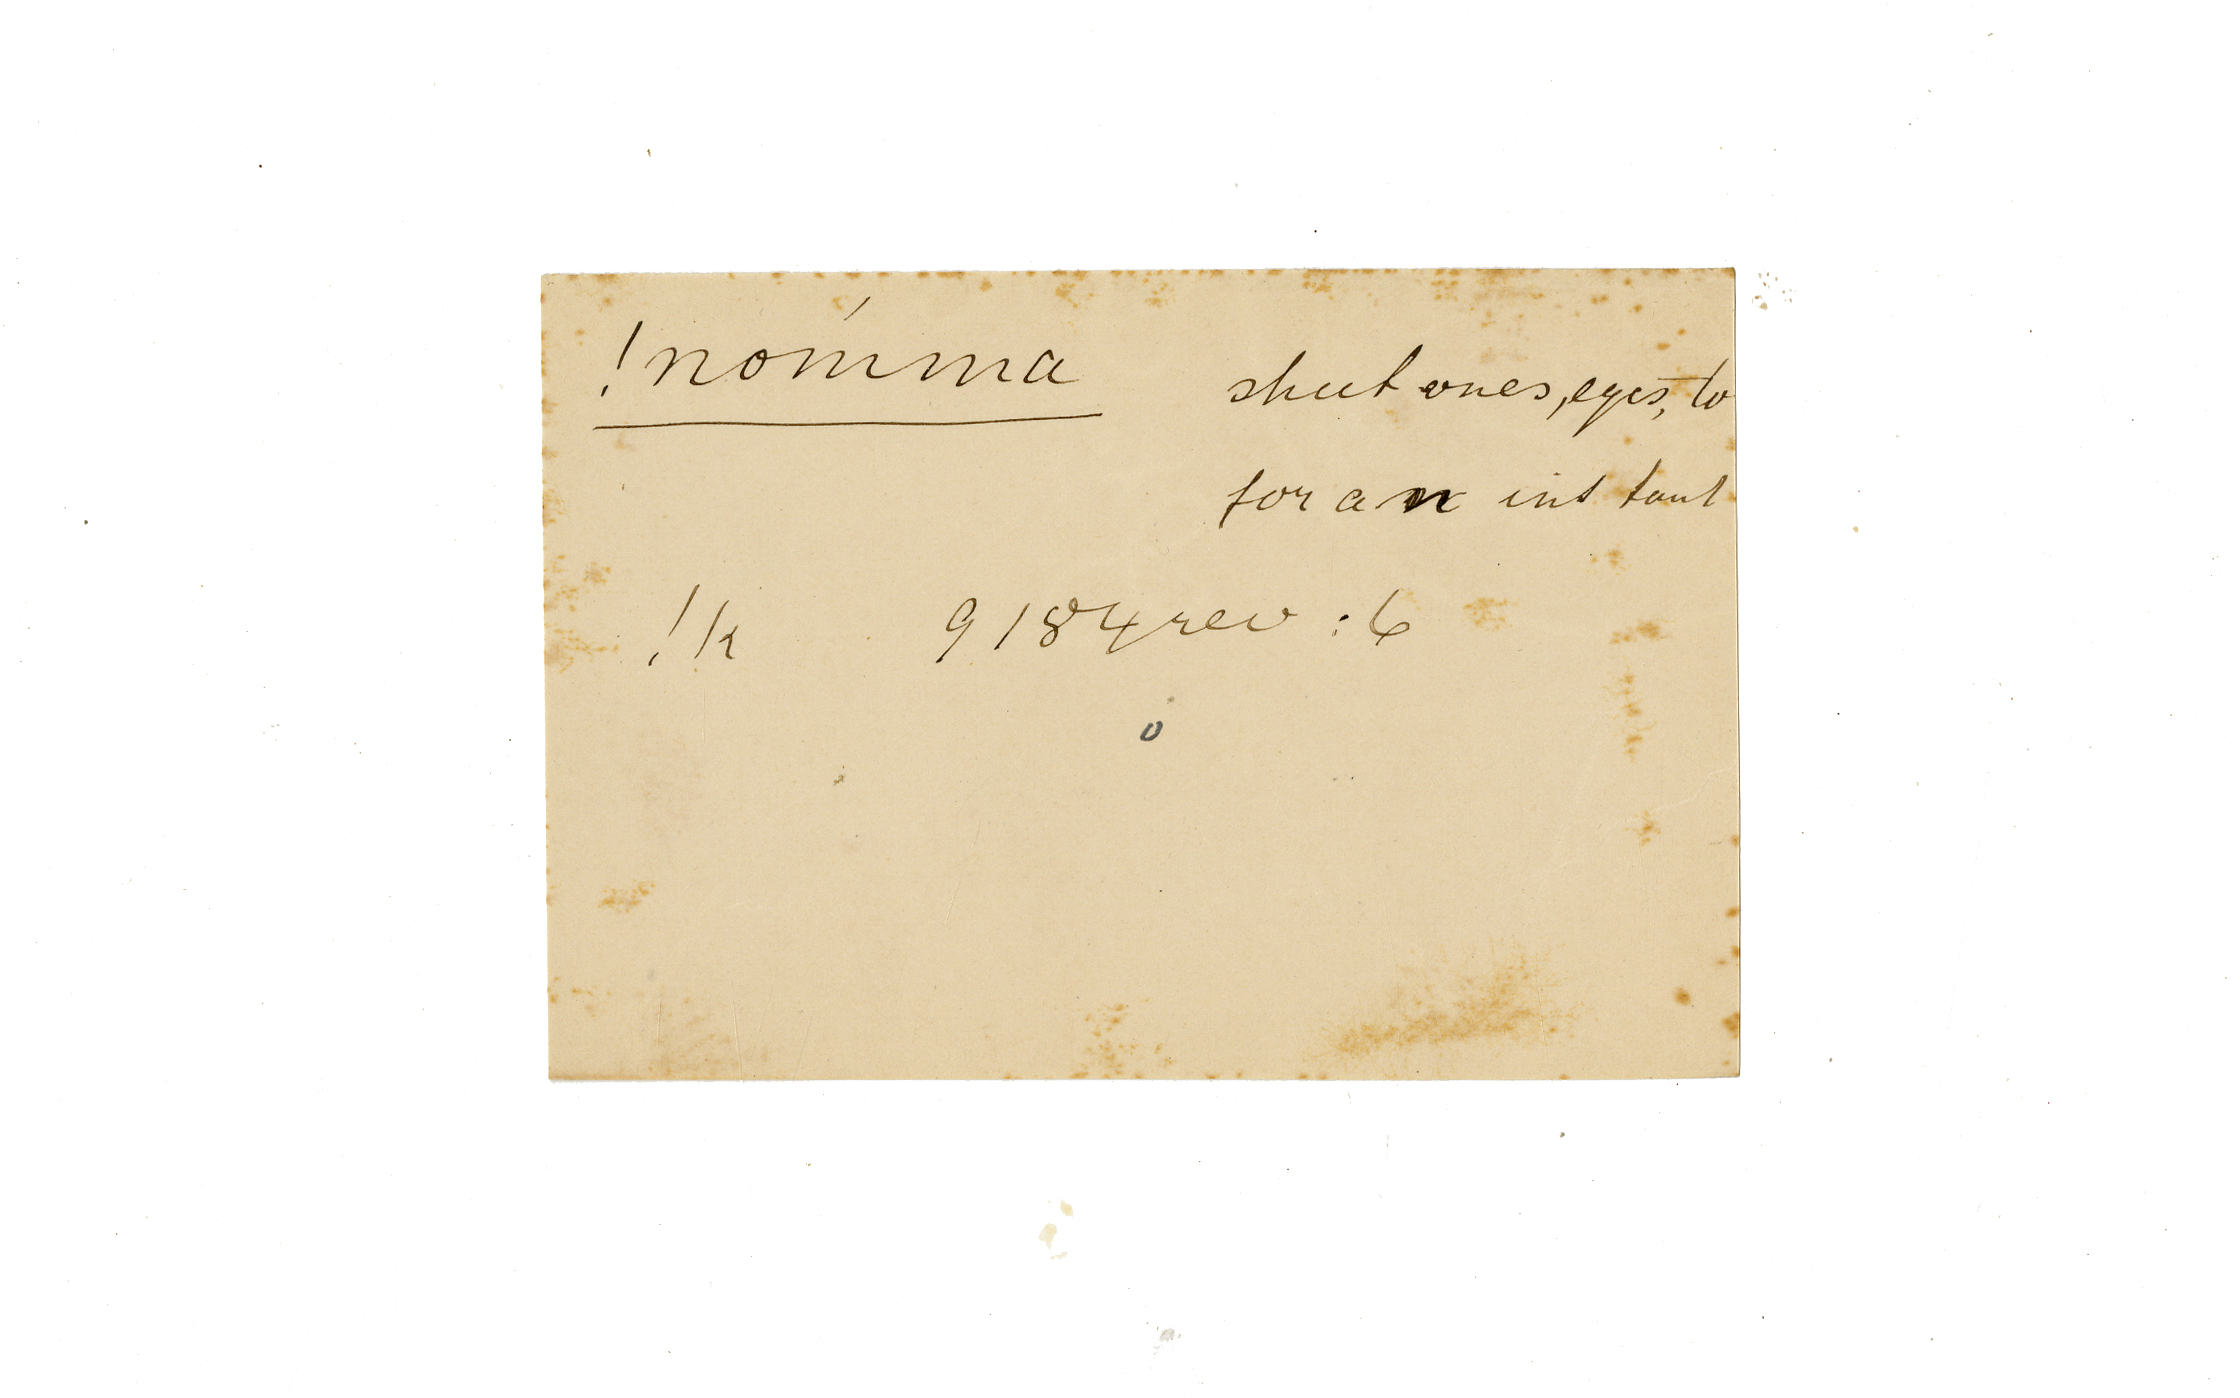 !nómma
shut ones, eyes, to
for an instant
!k 9184 rev : 6
o